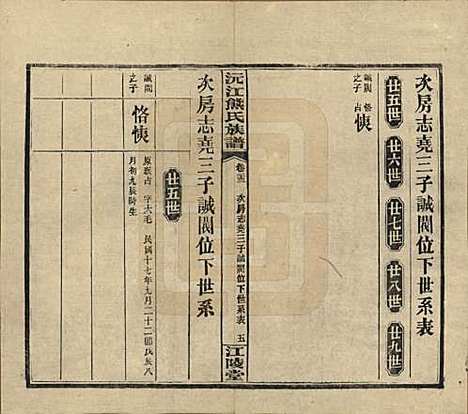 次房志堯三子誠閣位下世系表
廿五世 廿六世 廿七世 廿八世 廿九世
誠閣 恪
之子 占
恞
沅江熊氏族譜
卷
次房志堯三子誠閣位下世系表 五
江陵堂
次房志堯三子誠閣位下世系
廿五世
誠閣
之子
恪恞
原取占 字大毛 民國十七年九月二十二 氏 八
月初九辰時生